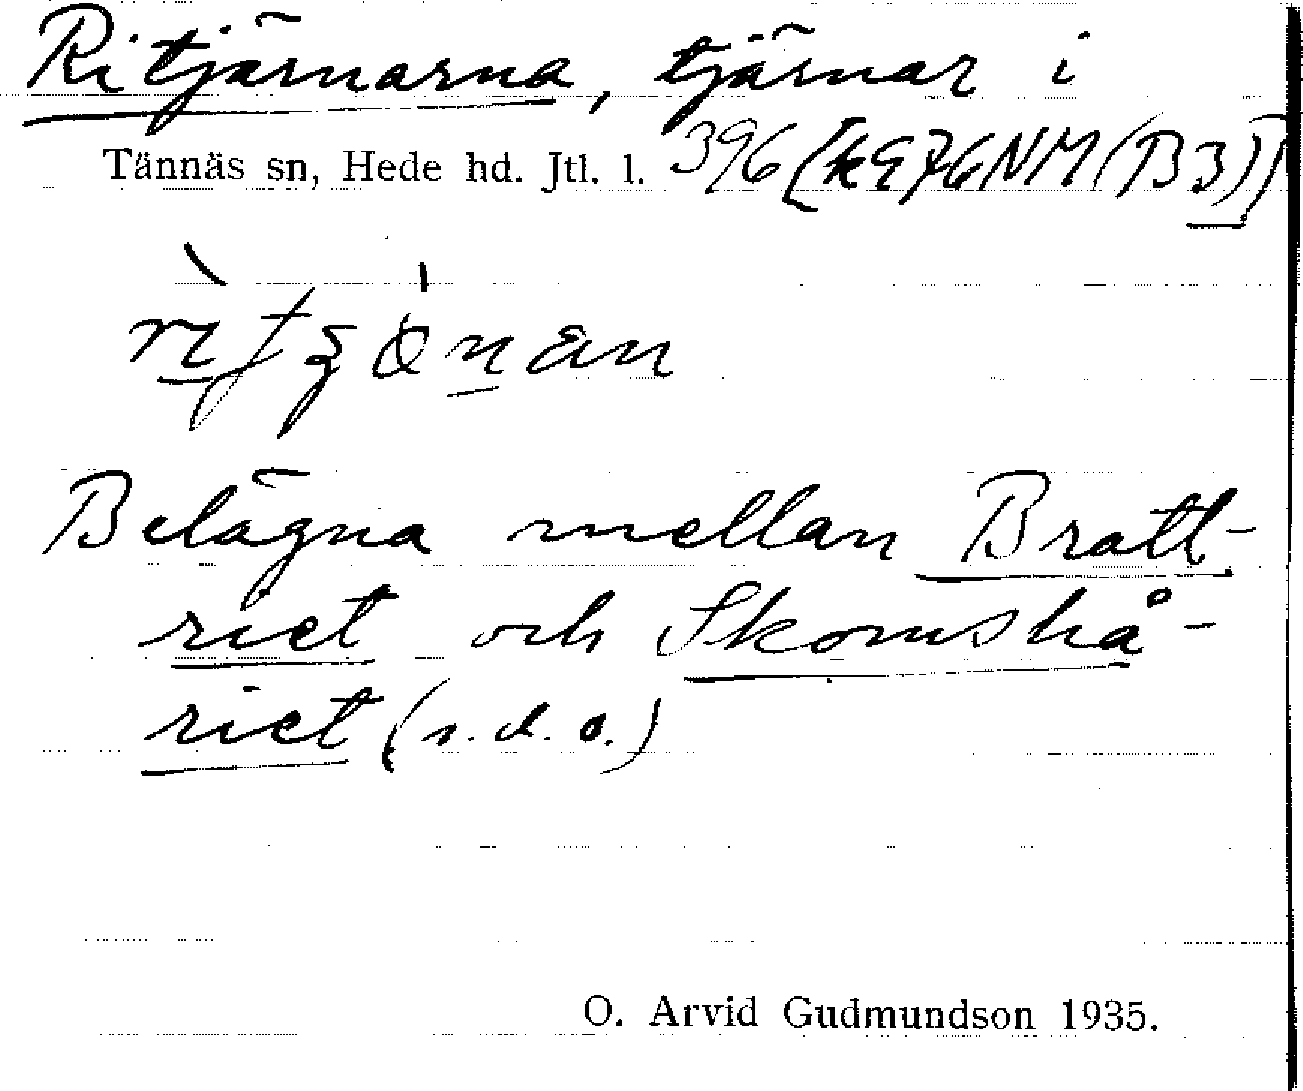 Ritjärnarna, tjärnar i
Tännäs sn, Hede hd. Jtl. l. 396
Belägna mellan Bratt-
riet och Skomshå-
riet (s.d.o.)
O. Arvid Gudmundson 1935.